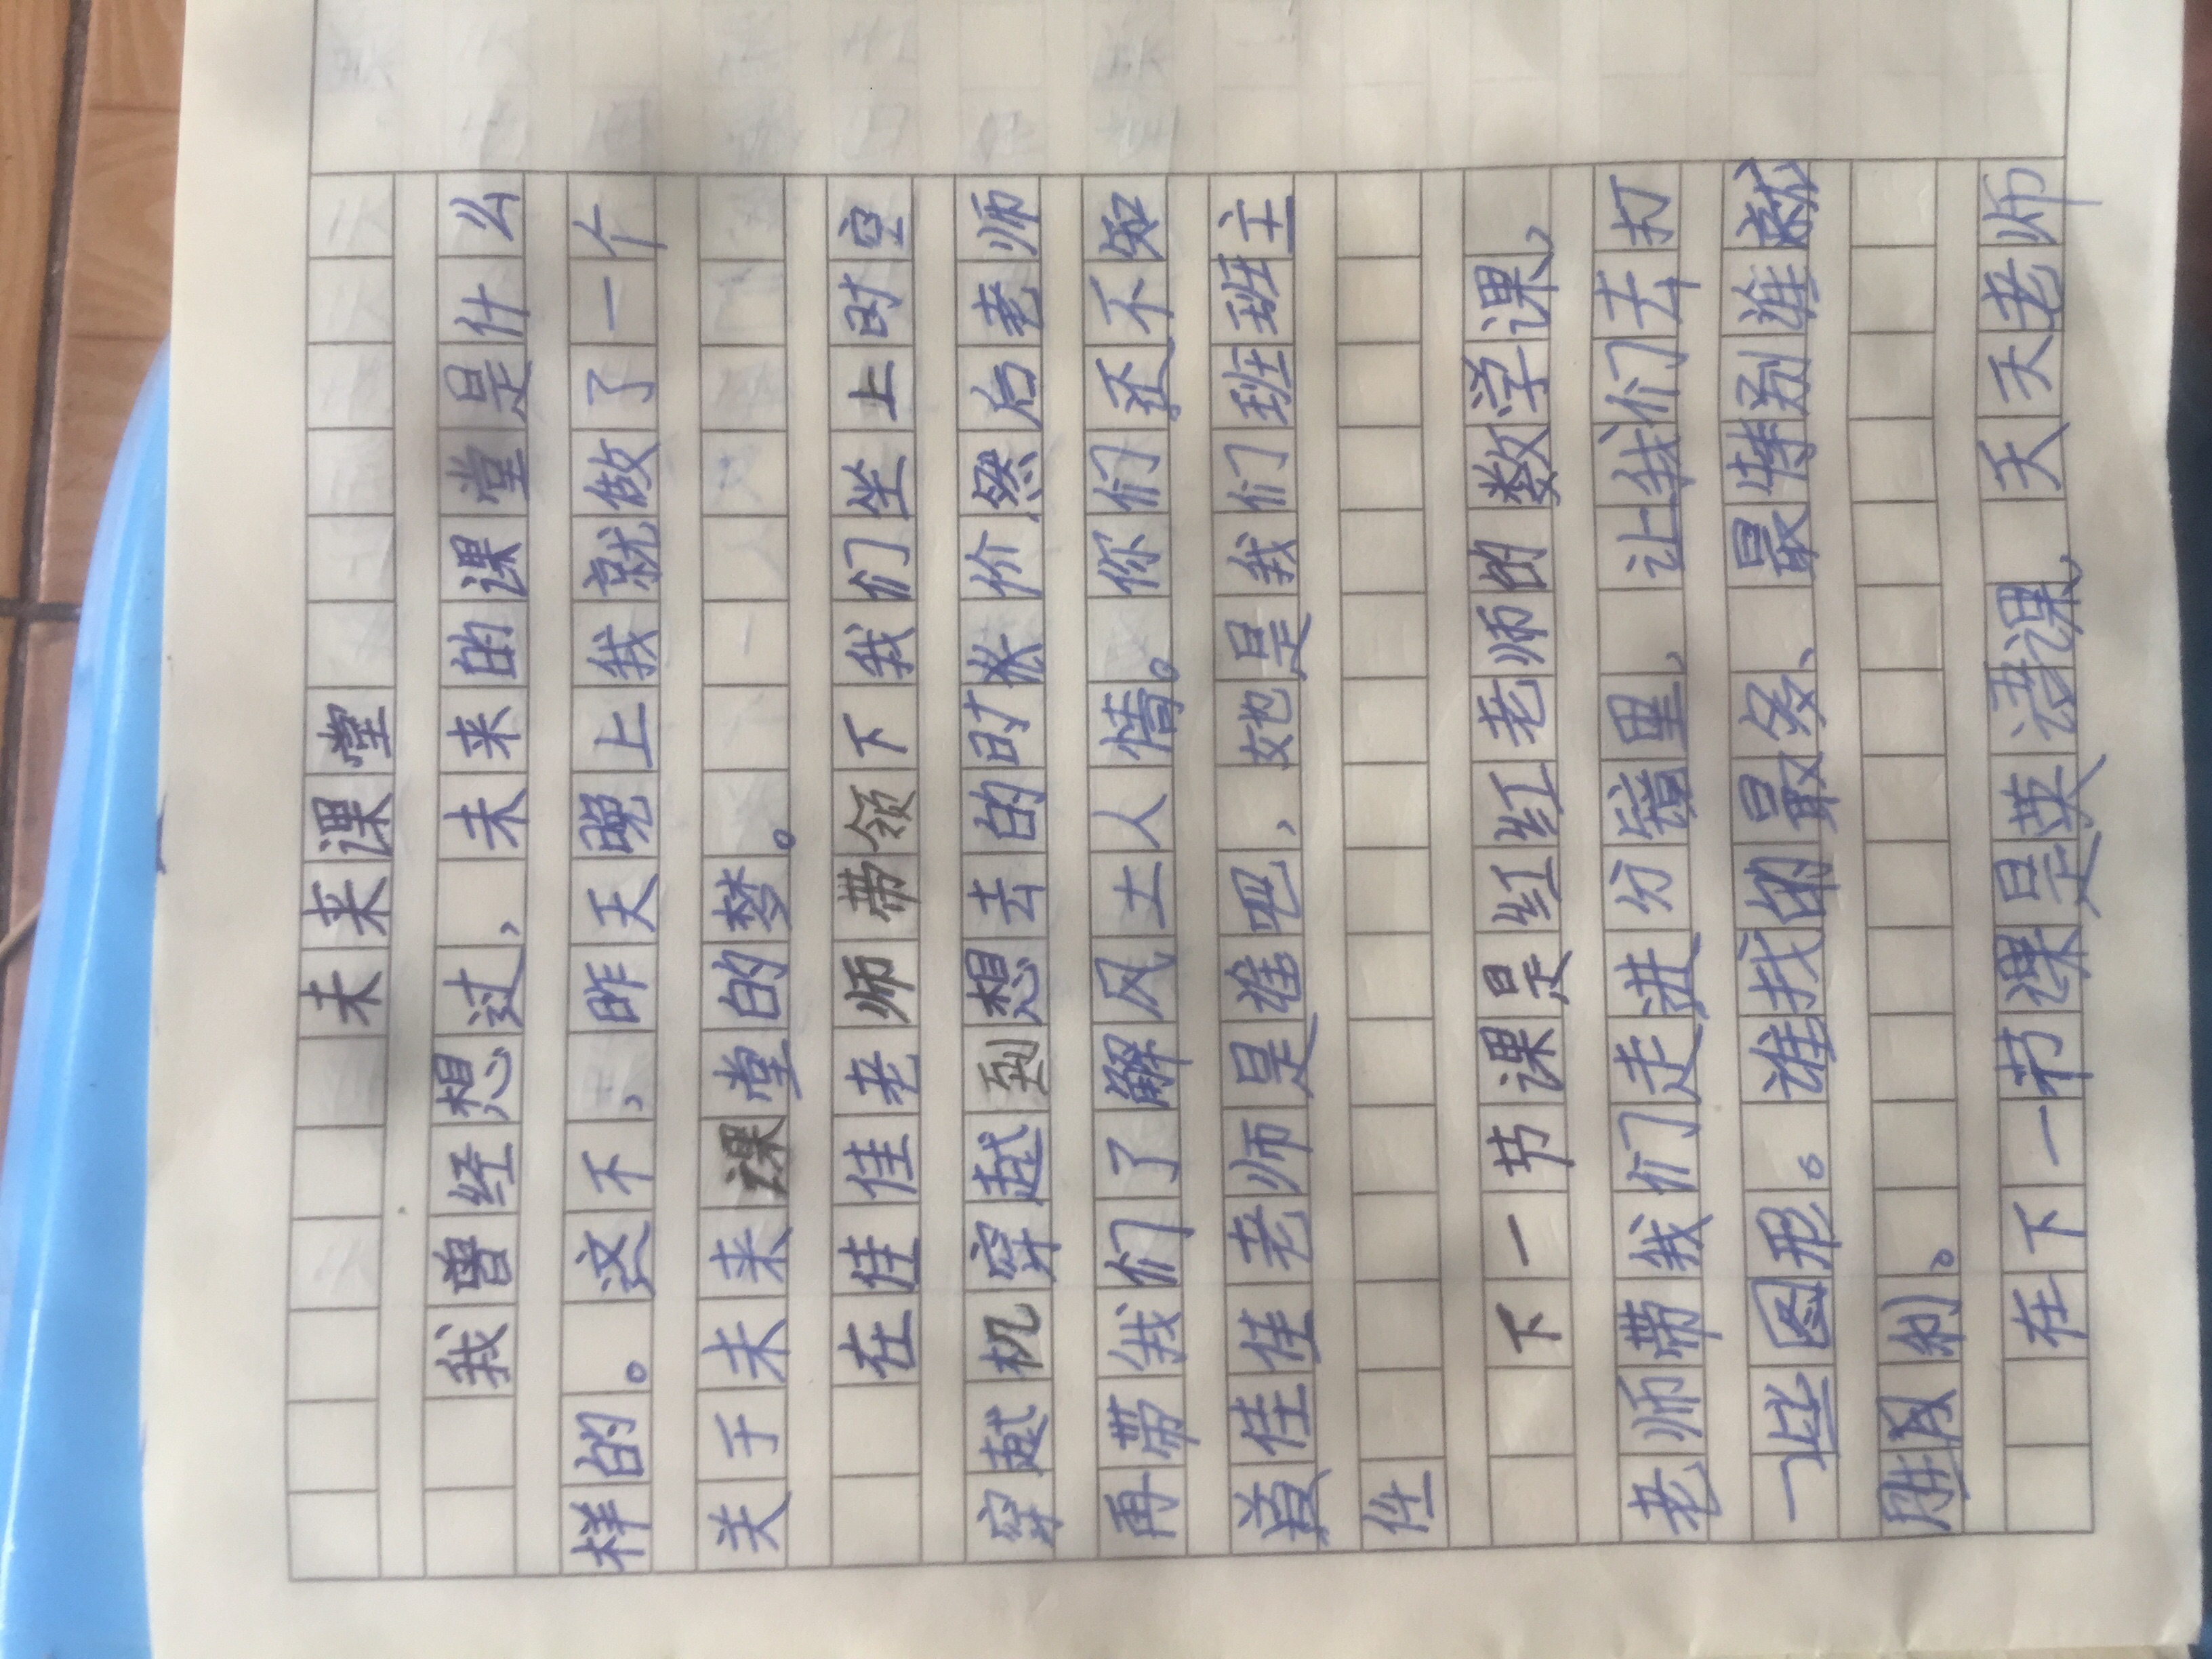 未来课堂
我曾经想过，未来的课堂是什么
样的。这不，昨天晚上我就做了一个
关于未来课堂的梦。
在佳佳老师带领下我们坐上时空
穿越机穿越到想去的时代价然后老师
再带我们了解风土人情。你们还不知
道佳佳老师是谁吧，她是我们班班主
任
下一节课是红红老师的数学课，
老师带我们走进分镜里，让我们去打
一些图形。谁找的最多、最特别谁就
胜利。
在下一节课是英语课，天天老师